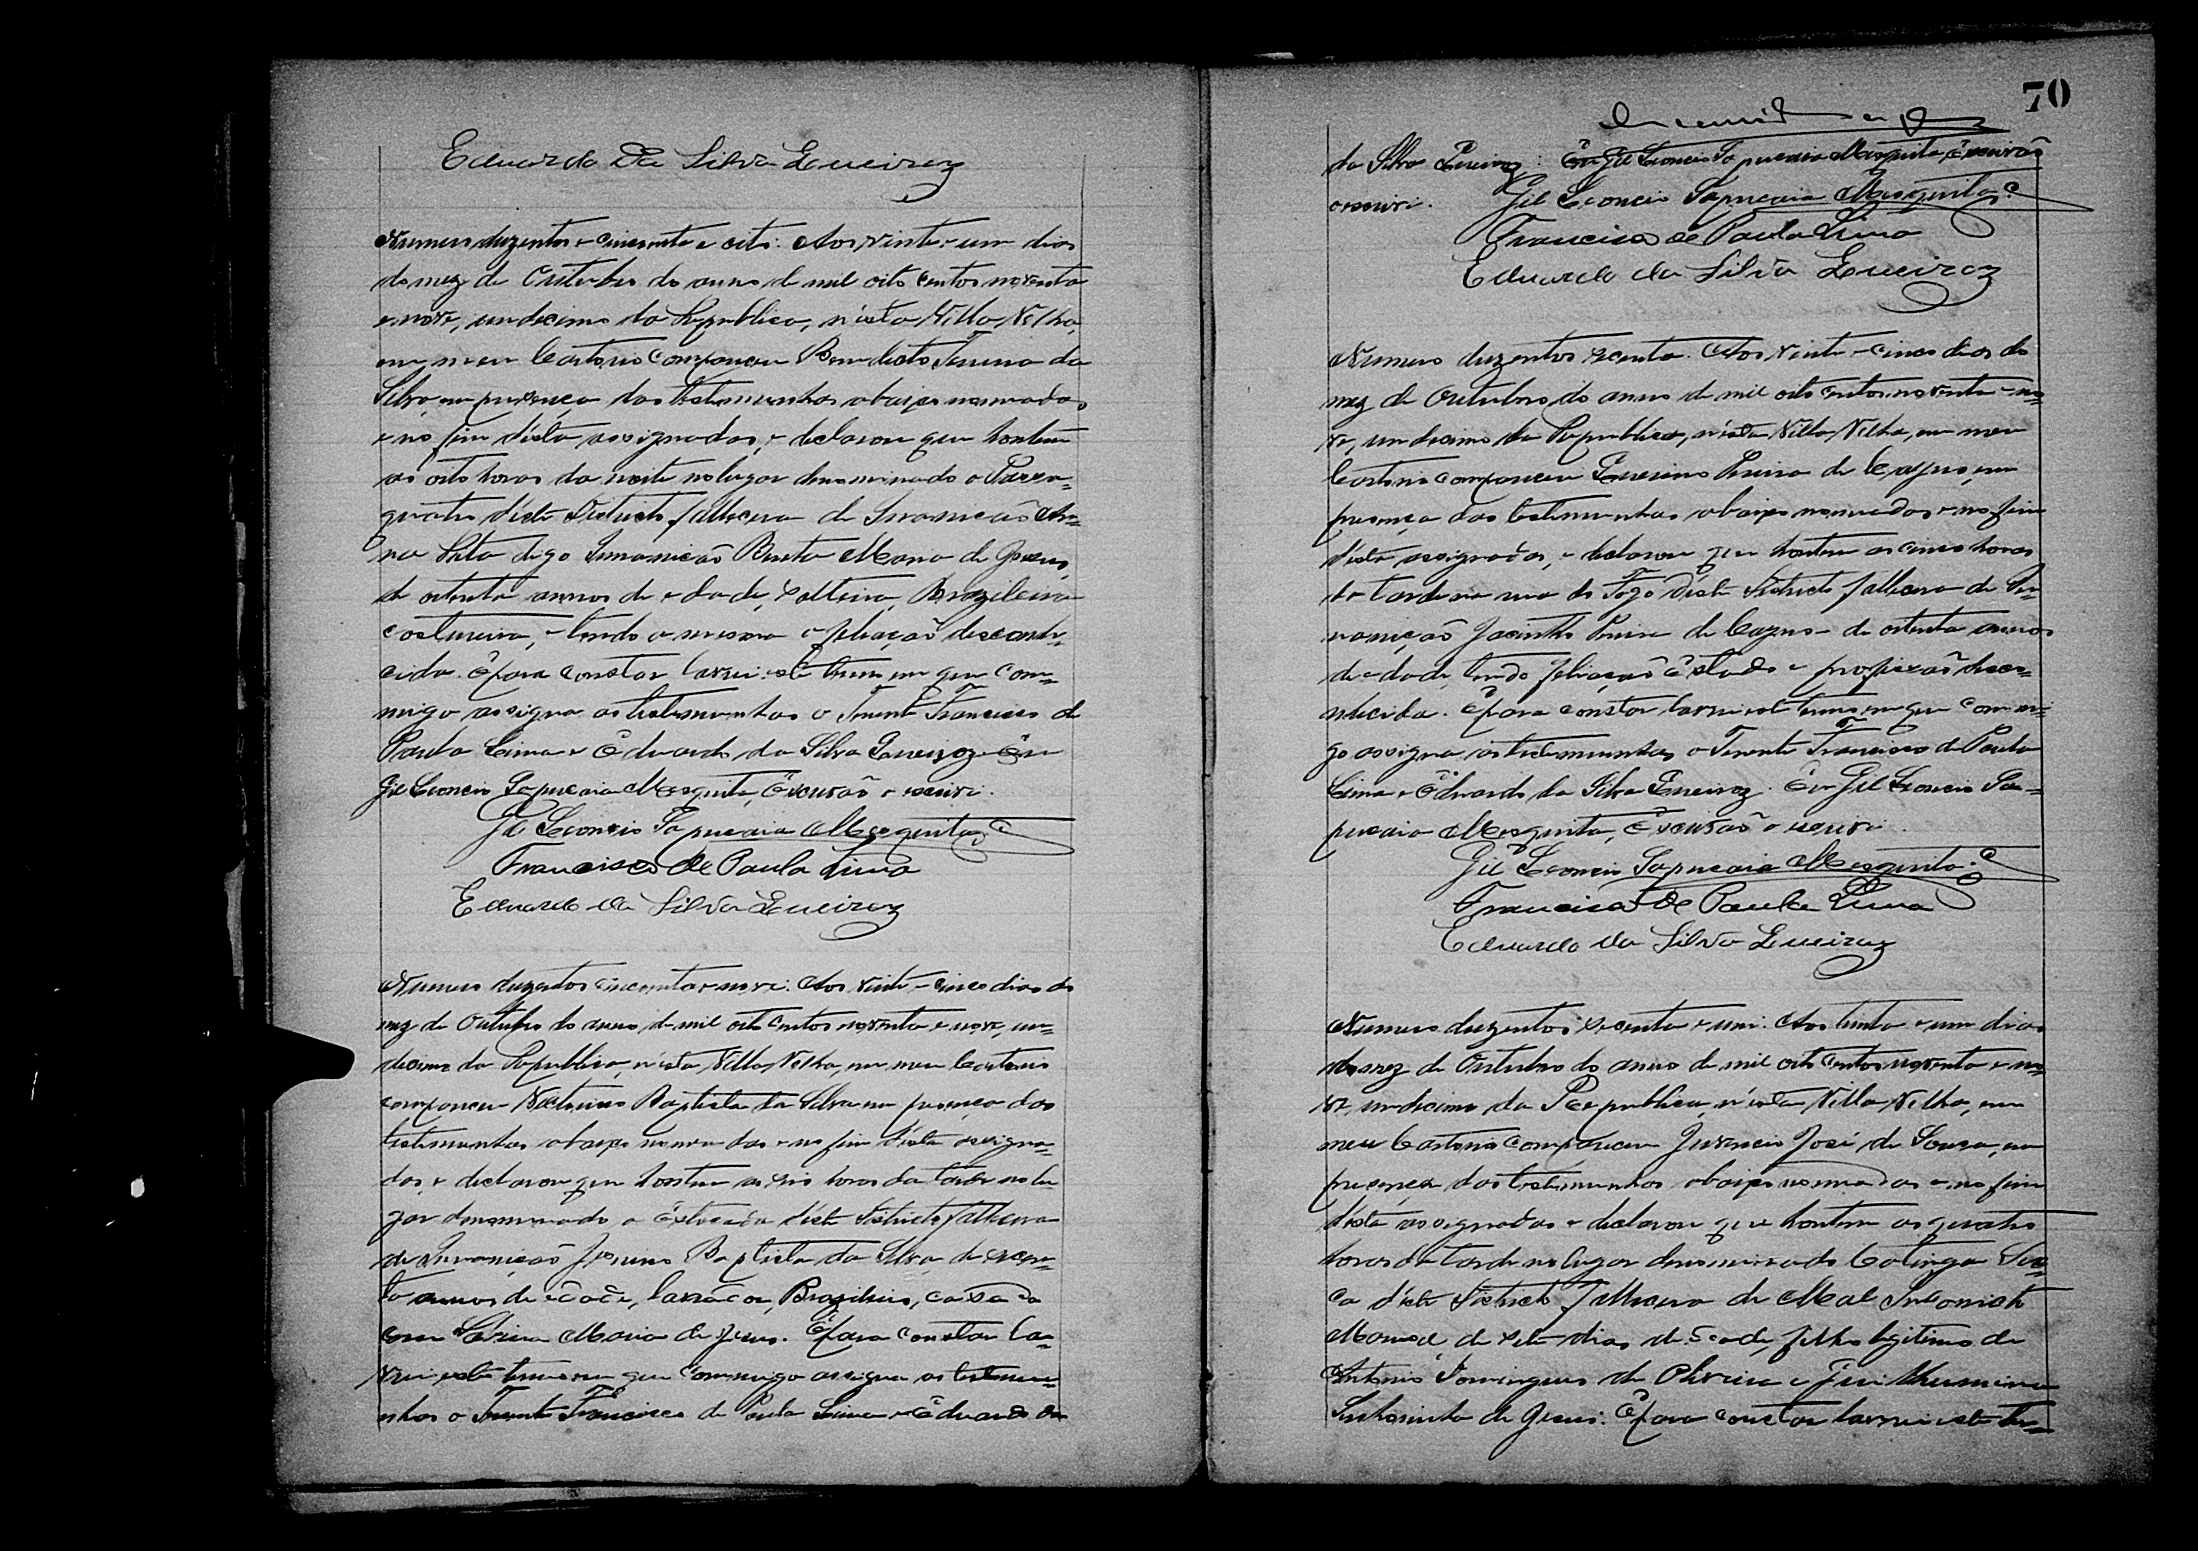 Eduardo da Silva Queiroz
Numero duzentos e cincoenta e oito. Aos vinte e um dias
do mez de Outubro do anno de mil oito centos noventa
e nove, undecimo da Republica, n'esta Villa Velha,
em meu Cartorio compareceu Benedicto da
Silva, em presença das testemunhas abaixo nomeadas
e no fim d'esta assignadas, e declarou que hontem
as oito horas da noite no lugar denominado o
d'este Districto fallecera de
digo Innanição Benta Maria de Jesus,
de oitenta annos de edade, solteira, Brazileira
costureira, e tendo a mesma a filiação desconhe=
cida. E para constar lavrei este termo em que com=
migo assigna as testemunhas o Tenente Francisco de
Paula Lima e Eduardo da Silva Queiroz. Eu
Gil Leoncio Sapucaia Mesquita, Escrivão o escrevi.
Gil Leoncio Sapucaia Mesquita
Francisco de Paula Lima
Eduardo da Silva Queiroz
Numero duzentos cincoenta e nove. Aos vinte e cinco dias do
mez de Outubro do anno de mil oito centos noventa e nove, un=
decimo da Republica, n'esta Villa Velha, em meu Cartorio
compareceu Baptista da Silva em presença das
testemunhas abaixo nomeadas e no fim d'esta assigna=
das, e declarou que hontem as seis horas da tarde no lu
gar denominado a d'este Districto fallecera
de Innanição Baptista da Silva, de secen=
ta annos de edade, lavrador, Brazileiro, casado
com Maria de Jesus. E para constar la=
vrei este termo em que commigo assigna as testemu=
nhas o Tenente Francisco de Paula Lima e Eduardo da
70
da Silva Queiroz. Eu Gil Leoncio Sapucaia Mesquita, Escrivão
o escrevi. Gil Leoncio Sapucaia Mesquita
Francisco de Paula Lima
Eduardo da Silva Queiroz
Numero duzentos secenta. Aos vinte e cinco dias do
mez de Outubro do anno de mil oito centos noventa e no=
ve, undecimo da Republica, n'esta Villa Velha, em meu
Cartorio compareceu Pereira de em
presença das testemunhas abaixo nomeadas e no fim
d'esta assignadas, e declarou que hontem as cinco horas
da tarde na rua do Fogo d'este Districto fallecera de In=
nanição Jacintho Pereira de de oitenta annos
de edade, tendo filiação Estado e profissão desco=
nhecida. E para constar lavrei este termo em que commi=
go assigna as testemunhas o Tenente Francisco de Paula
Lima e Eduardo da Silva Queiroz. Eu Gil Leoncio Sa=
pucaia Mesquita, Escrivão o escrevi.
Gil Leoncio Sapucaia Mesquita
Francisco de Paula Lima
Eduardo da Silva Queiroz
Numero duzentos secenta e um. Aos trinta e um dias
do mez de Outubro do anno de mil oito centos noventa e no=
ve, undecimo da Republica, n'esta Villa Velha, em
meu Cartorio compareceu Juvencio José de Souza, em
presença das testemunhas abaixo nomeadas e no fim
d'esta assignadas e declarou que hontem as quatro
horas da tarde no lugar denominado Catinga Se=
ca d'este Districto fallecera de Mal
Manoel de sete dias de edade, filho legitimo de
Antonio Domingues de Oliveira e
de Jesus. E para constar lavrei este ter=